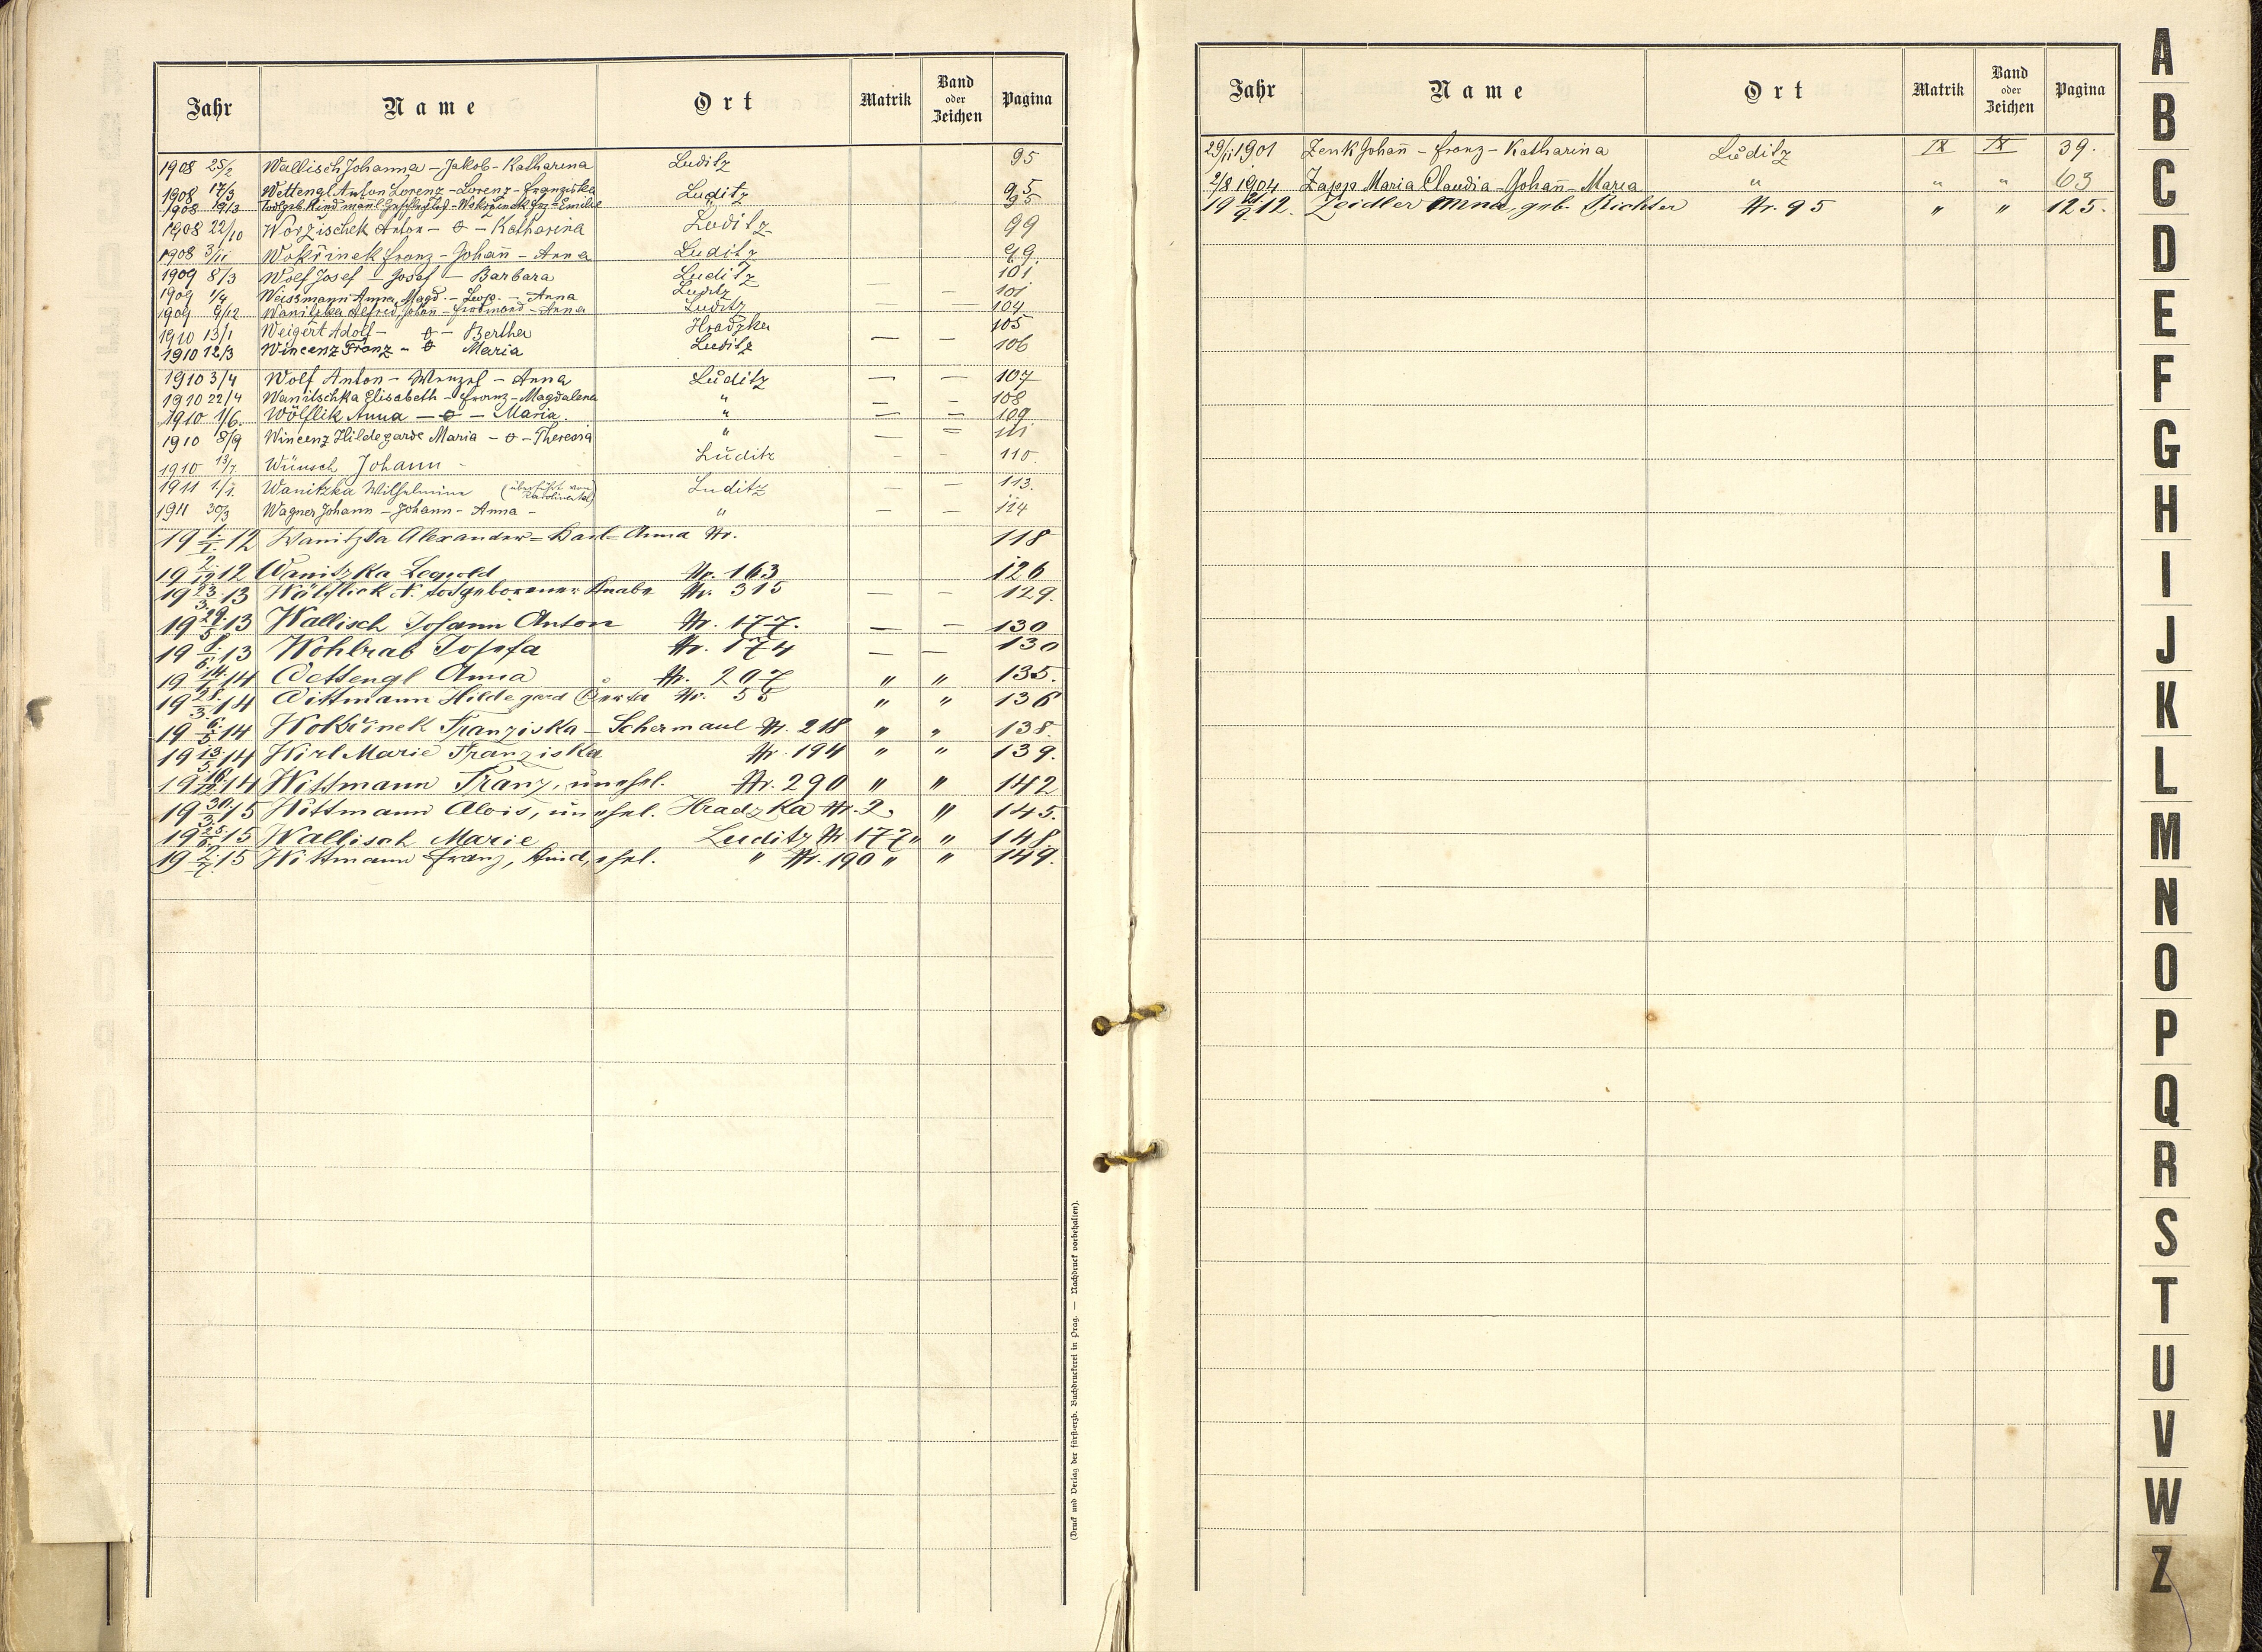 Jahr Name Ort Matrik Band oder Zeichen Pagina
1908 25/2 Wallisch Johanna – Jakob - Katharina Luditz 95
1908 17/3 Wettengl Anton Lorenz – Lorenz – Franziska Luditz 95
1908 19/3 Todtgeb. Kind männl. Geschlechtes – Wokřinek Frz – Emilie " 95
1908 22/10 Worzischek Anton – o – Katharina Luditz 99
1908 3/11 Wokřinek Franz – Johañ – Anna Luditz 99.
1909 8/3 Wolf Josef – Josef – Barbara Luditz 101
1909 1/4 Weissmann Anna Magd. – Leop. – Anna Luditz — – 101
1909 9/12 Wanitzka Alfred Johan – Ferdinand – Anna Luditz — — 104
1910 13/1 Weigert Adolf – o – Bertha Hradzka 105
1910 12/3 Wincenz Franz – o Maria Luditz — – 106
1910 3/4 Wolf Anton – Wenzel – Anna Luditz — — 107
1910 22/4 Wanitschka Elisabeth – Franz – Magdalena " – – 108
1910 1/6. Wölflik Anna – o – Maria. " — = 109
1910 8/9 Wincenz Hildegarde Maria – o – Theresia " — = 111
1910 13/7. Wünsch Johann - Luditz – - 110.
1911 1/1. Wanitzka Wilhelmine (überführt von Karolinental) Luditz — – 113.
1911 30/3 Wagner Johann – Johann – Anna – " — – 114
19 1./1. 12 Wanitzka Alexander = Karl = Anna Nr. 118
19 2./12 12 Wanitzka Leopold Nr. 163 126
19 23./3. 13 Wölflick N. todgeborener Knabe Nr. 315 — – 129.
19 29./5 13 Wallisch Johann Anton Nr. 177. — – 130
19 8./6. 13 Wohlrab Josefa Nr. 174 — — 130
19 14./1 14 Wettengl Anna Nr. 207 " " 135.
19 28./3. 14 Wittmann Hildegard Berta Nr. 55 " " 136
19 6./5 14 Wokřinek Franziska – Schermaul Nr. 218 " " 138.
19 13./5. 14 Wirl Marie Franziska Nr. 194 " " 139.
19 16./12. 14 Wittmann Franz, unehel. Nr. 290 " " 142
19 30./3. 15 Wittmann Alois, unehel. Hradzka Nr. 2. " 145.
19 25./6. 15 Wallisch Marie Luditz Nr. 177 " " 148.
19 2./7. 15 Wittmann Franz, Kind, ehel. " Nr. 190 " " 149.
(Druck und Verlag der fürst-erzb. Buchdruckerei in Prag. — Nachdruck vorbehalten).
Jahr Name Ort Matrik Band oder Zeichen Pagina
29/11 1901 Zenk Johañ – Franz – Katharina Luditz IX IX 39.
2/8 1904 Zapp Maria Claudia – Johañ – Maria " " " 63
19 12. Zeidler Anna, geb. Richter Nr. 95 " " 125.
A
B
C
D
E
F
G
H
I
J
K
L
M
N
O
P
Q
R
S
T
U
V
W
Z